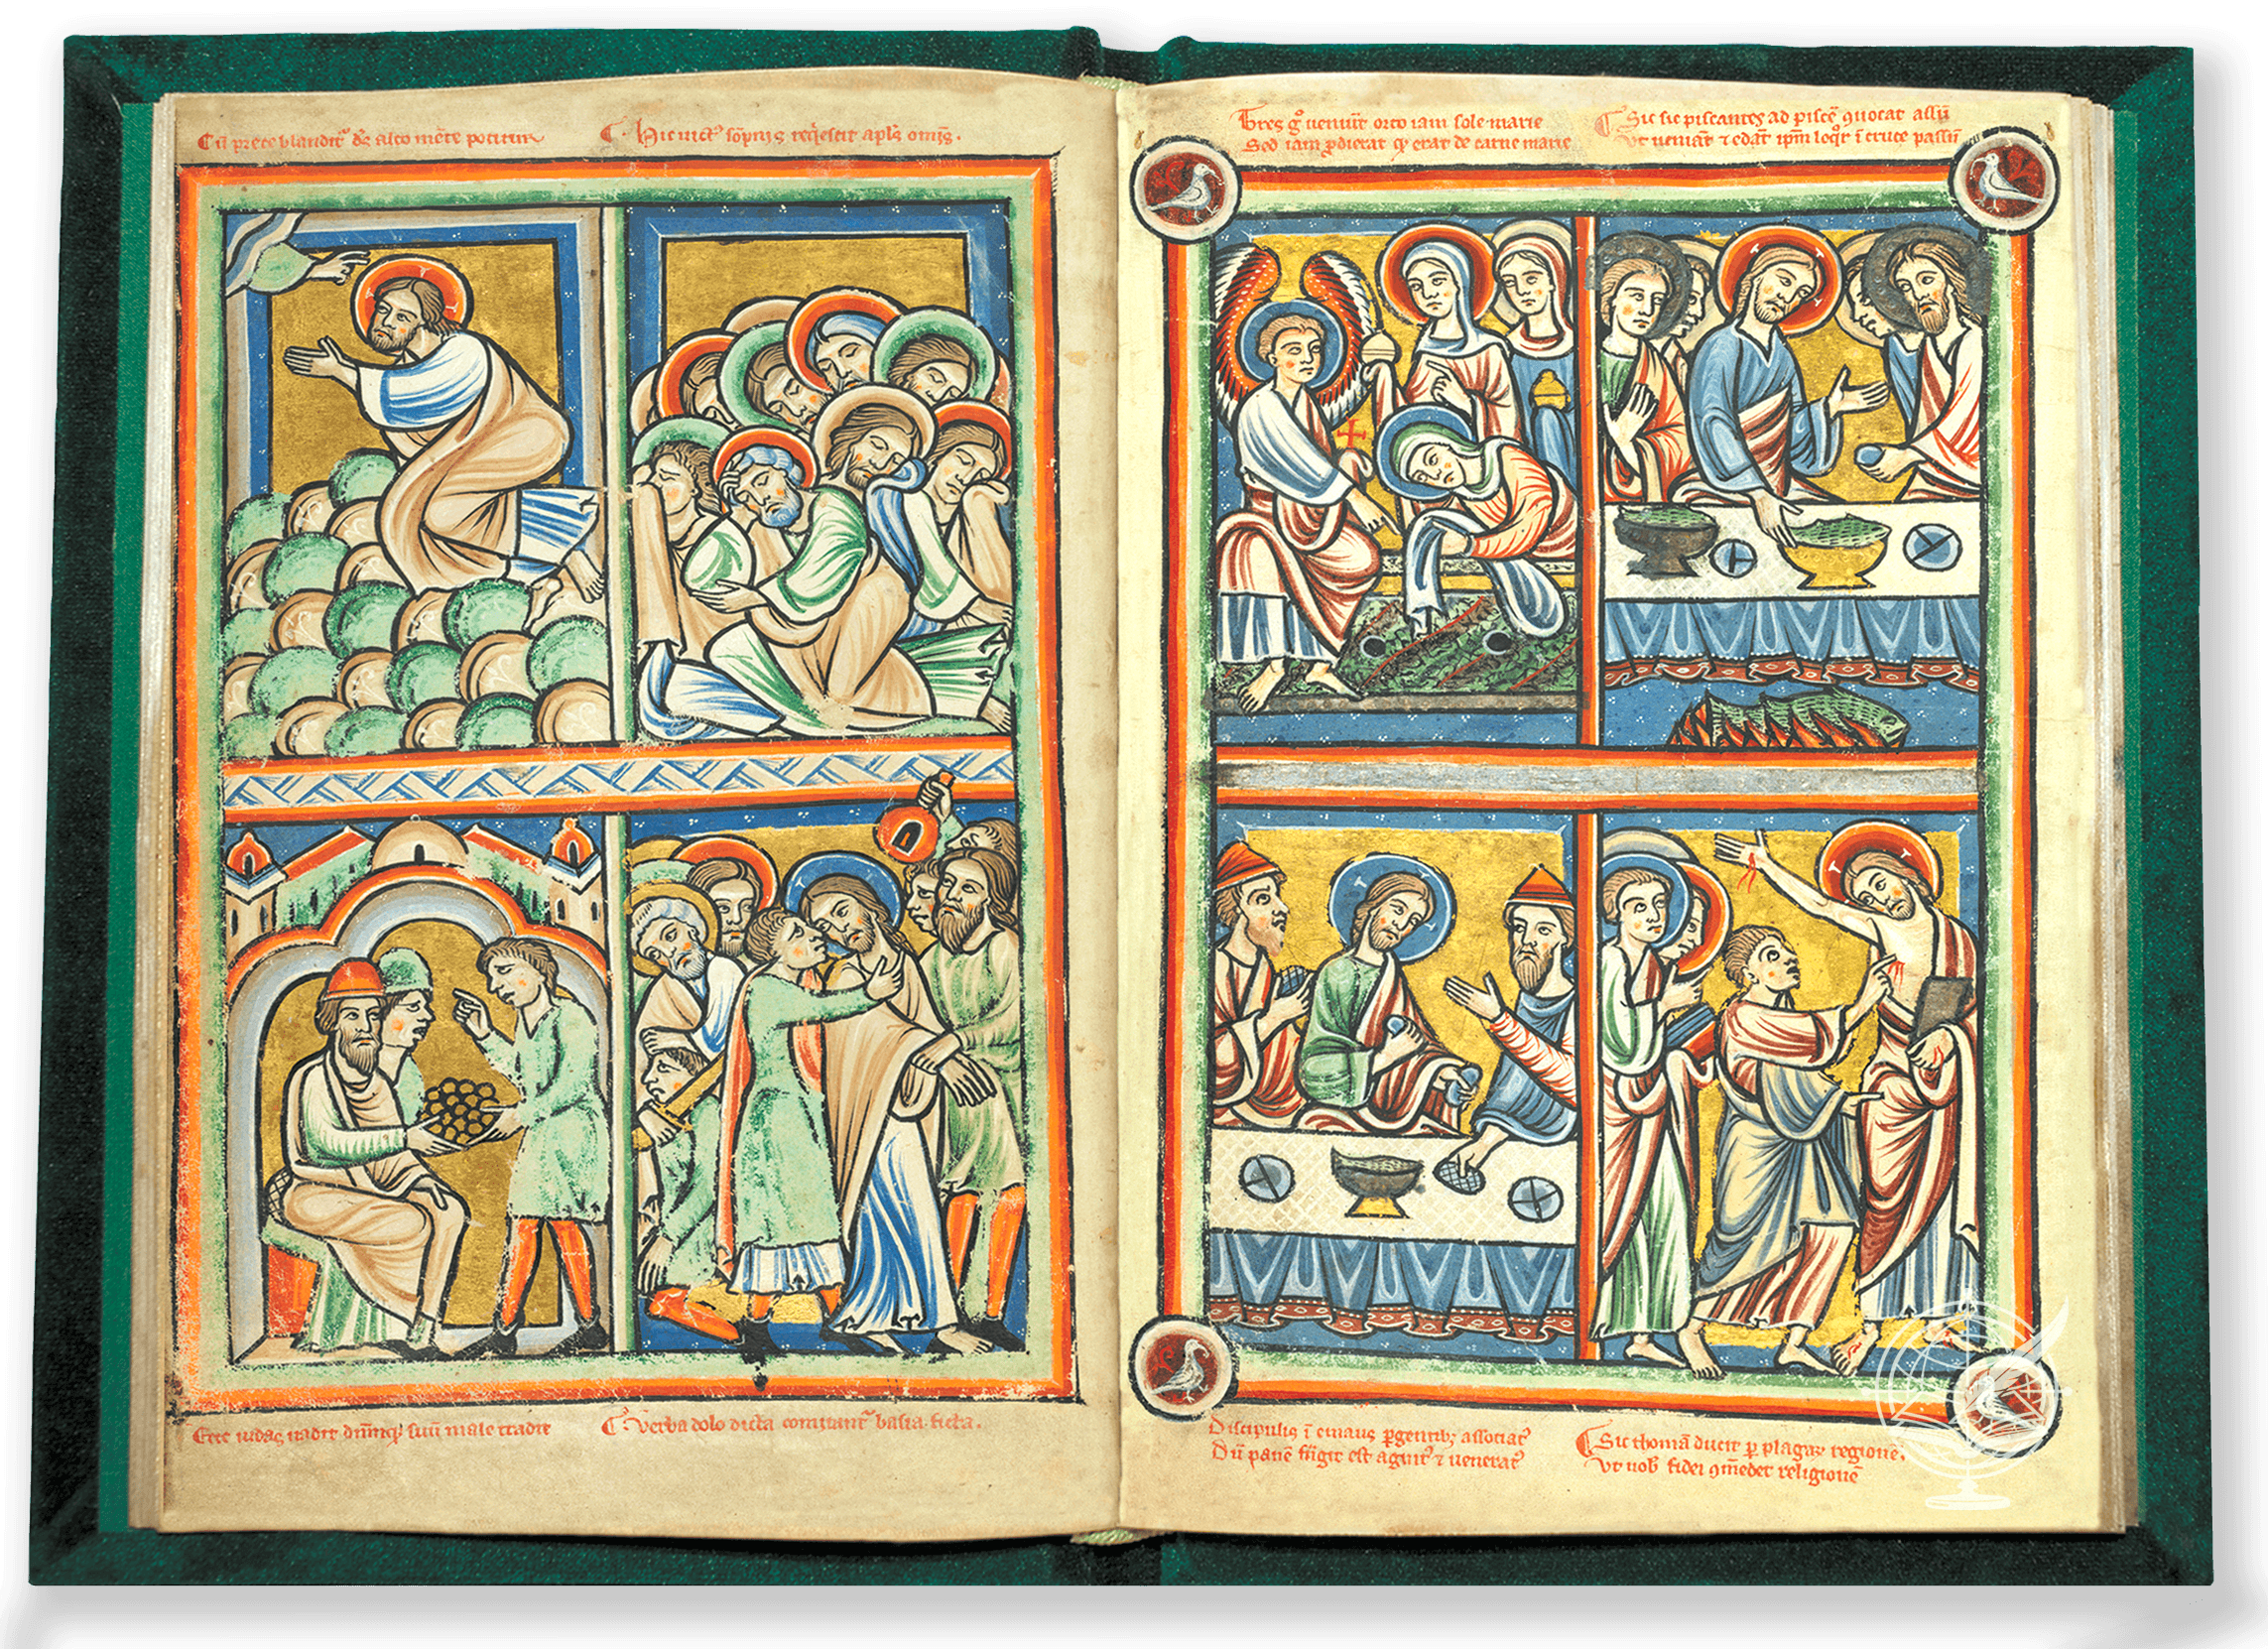 Cū prece blandit᷒ ds alto mēte potitur
Hic uict᷒ sōpnus reqͥescit apls omĩs.
Ecce iudas uadit dn̄mqꝫ suū male tradit
Verba dolo dicta comitant᷒ basia ficta.
Tres gͦ ueniūt orto iam sole marie
Sed iam ꝓdierat qͥ erat de carne marie
Sic sic piscantes ad piscē quocat assū
Vt ueniāt ⁊ edāt ipm̄ loqͥr ĩ cruce passū
Discipulis ĩ emaus ꝑgentibꝫ associat᷒
Dū panē frāgit est agnit᷒ ⁊ uenerat᷒
Sic thomā ducit ꝑ plagaꝝ regionē.
Vt nob̄ fidei ꝯmēdet religionē